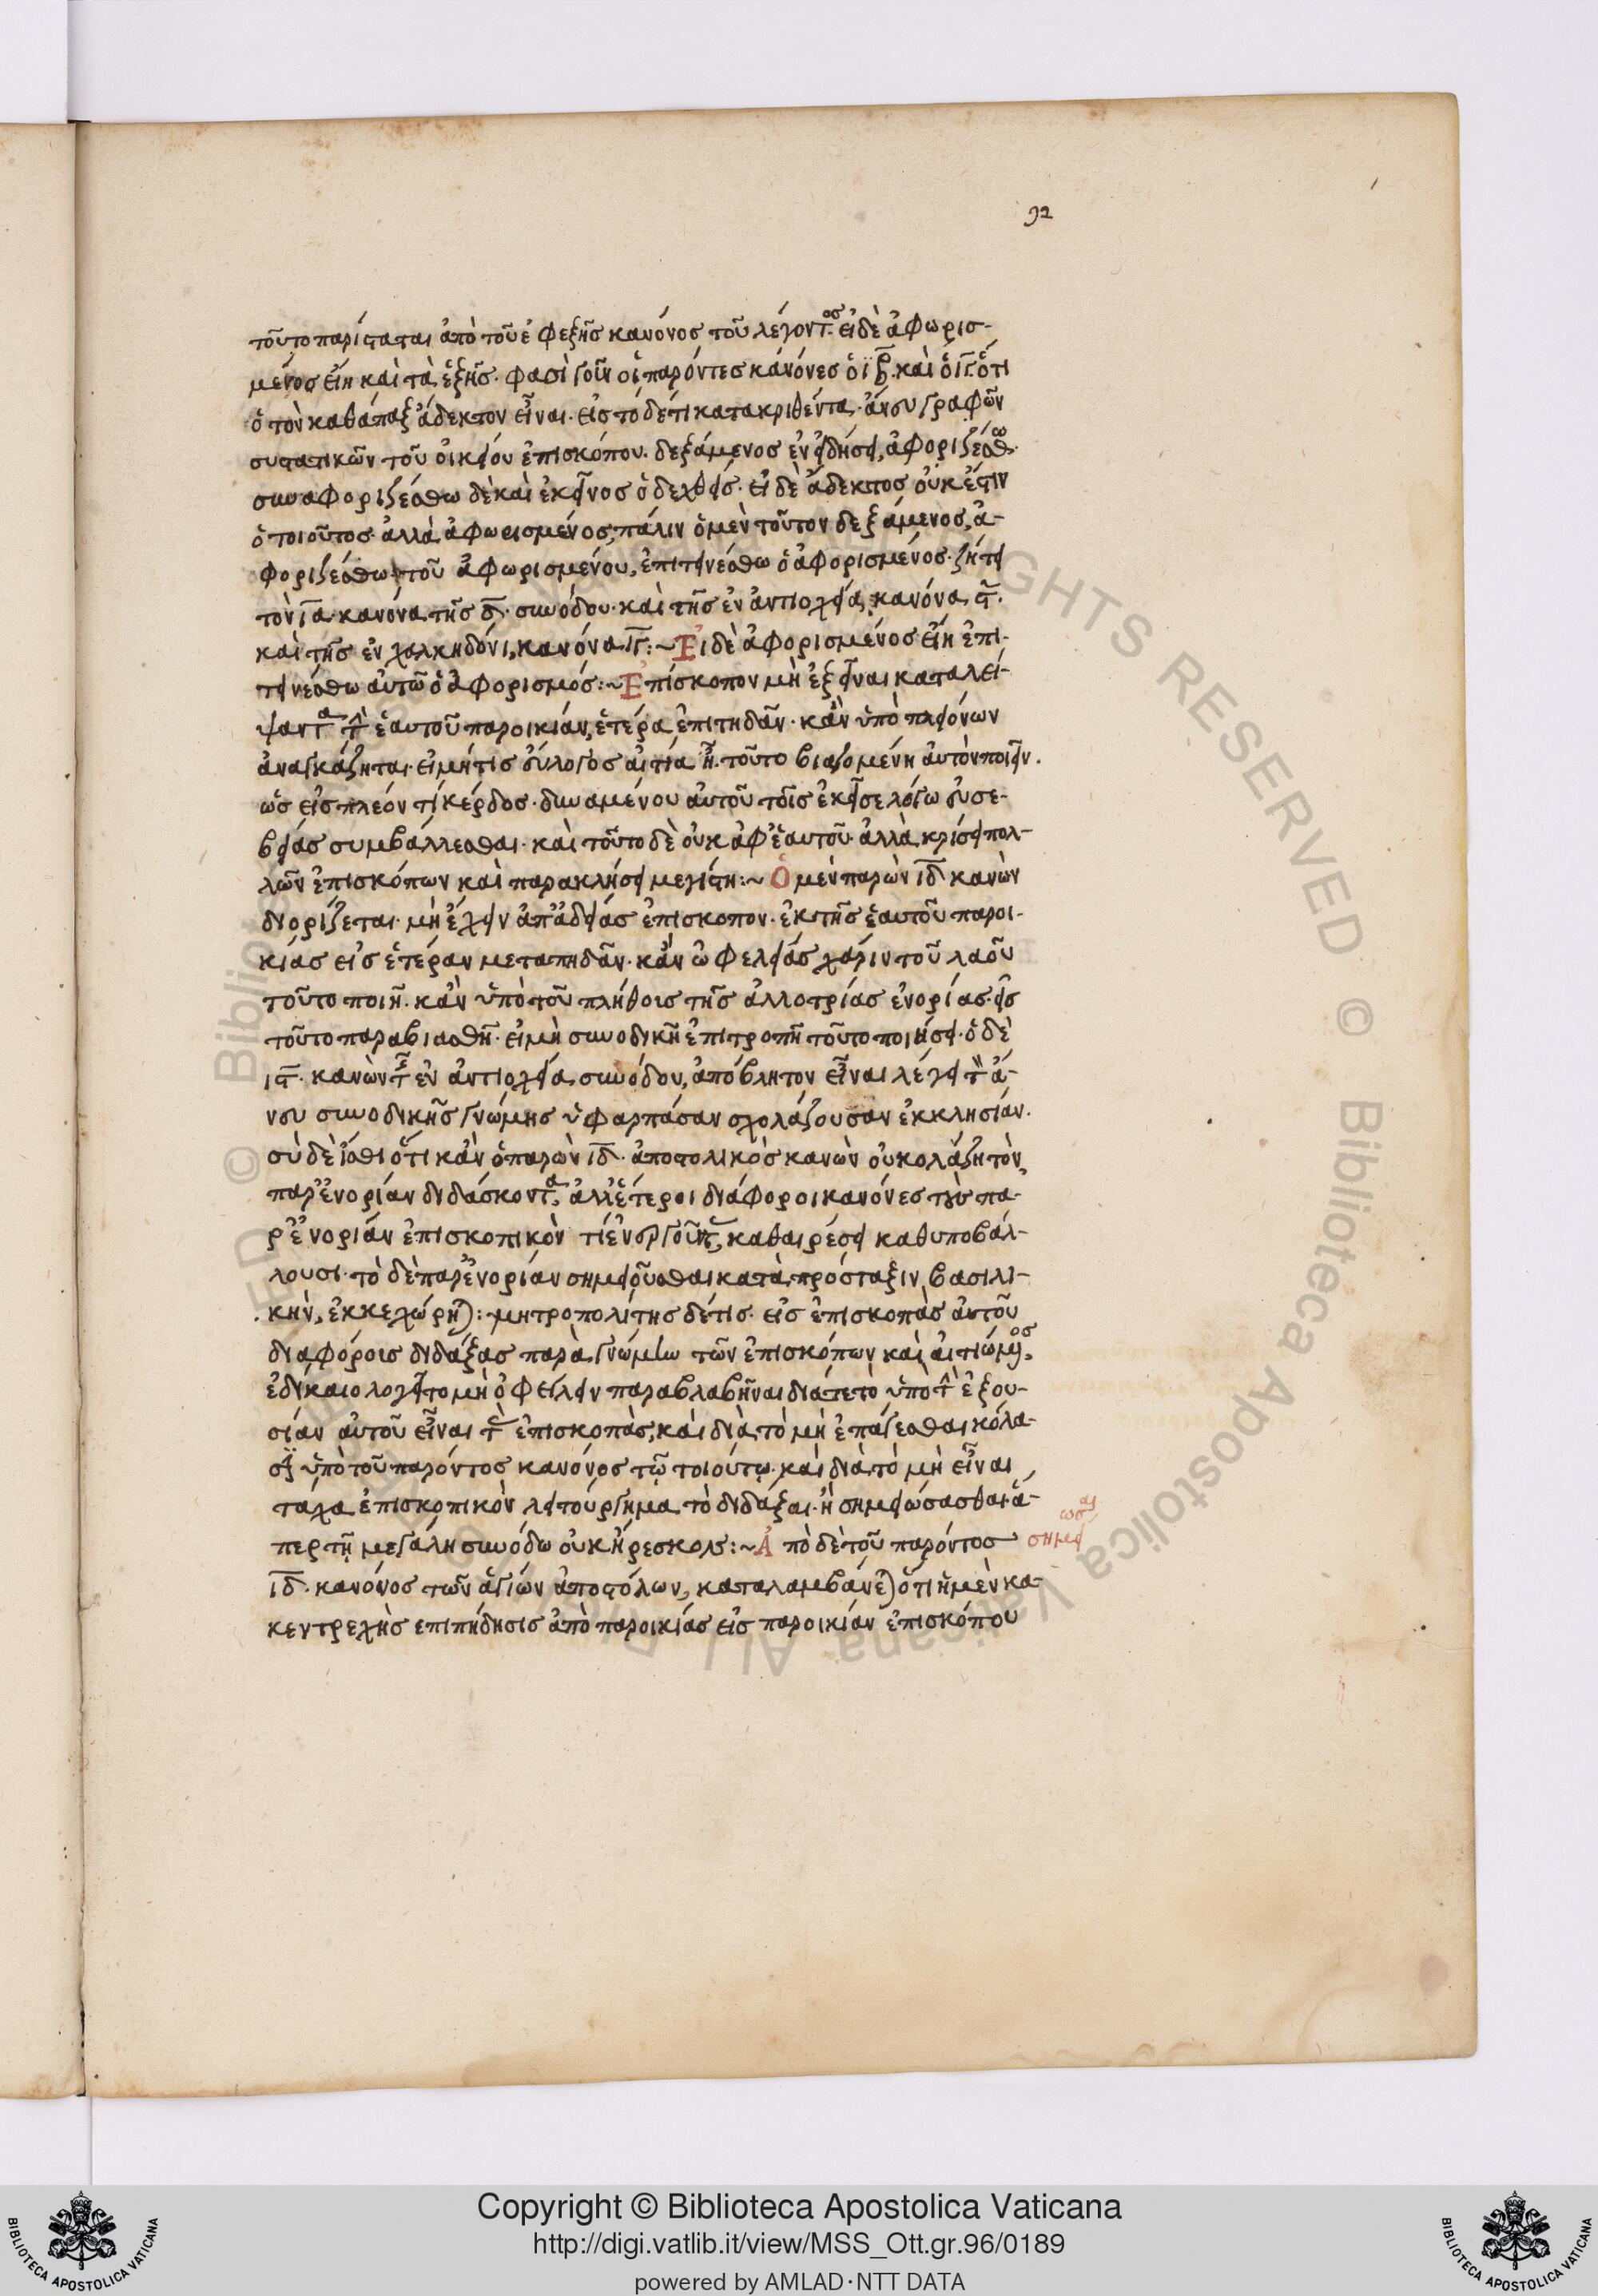 92
τοῦτο παρίσταται ἀπὸ τοῦ ἐφεξῆς κανόνος τοῦ λέγοντος. εἰ δὲ ἀφωρισ-
μένος εἴη καὶ τὰ ἑξῆς. φασὶ γοῦν οἱ παρόντες κανόνες ὁ ιβ. καὶ ὁ ιγ. ὅτι
ὁ τὸν καθάπαξ ἄδεκτον εἶναι. εἰς τὸ δέ τι κατακριθέντα. ἄνευ γραφῶν
συστατικῶν τοῦ οἰκείου ἐπισκόπου. δεξάμενος ἐν εἰδήσει, ἀφοριζέσθω.
συναφοριζέσθω δὲ καὶ ἐκεῖνος ὁ δεχθείς. εἰ δὲ ἄδεκτος οὐκ ἔστιν
ὁ τοιοῦτος. ἀλλὰ ἀφωρισμένος, πάλιν ὁ μὲν τοῦτον δεξάμενος, ἀ-
φοριζέσθω. τοῦ ἀφωρισμένου, ἐπιτεινέσθω ὁ ἀφορισμένος. ζήτει
τὸν ια. κανόνα τῆς δ. συνόδου. καὶ τῆς ἐν ἀντιοχεία, κανόνα ϛ.
καὶ τῆς ἐν χαλκηδόνι, κανόνα ιγ:~ Εἰ δὲ ἀφορισμένος εἴη ἐπι-
τεινέσθω αὐτῶ ὁ ἀφορισμός:~ Ἐπίσκοπον μὴ ἐξεῖναι καταλεί-
ψαντα τὴν ἑαυτοῦ παροικίαν, ἑτέρα ἐπιπηδᾶν. κἂν ὑπὸ πλειόνων
ἀναγκάζηται. εἰ μήτις εὔλογος αἰτία ᾖ. τοῦτο βιαζομένη αὐτὸν ποιεῖν.
ὡς εἰς πλέον τί κέρδος. δυναμένου αὐτοῦ τοῖς ἐκεῖσε λόγω εὐσε-
βείας συμβάλλεσθαι. καὶ τοῦτο δὲ οὐκ ἀφ' ἑαυτοῦ. ἀλλὰ κρίσει πολ-
λῶν ἐπισκόπων καὶ παρακλήσει μεγίστη:~ Ὁ μὲν παρὼν ιδ κανὼν
διορίζεται. μὴ ἔχειν ἀπ' ἀδείας ἐπίσκοπον. ἐκ τῆς ἑαυτοῦ παροι-
κίας εἰς ἑτέραν μεταπηδᾶν. κἂν ὠφελείας χάριν τοῦ λαοῦ
τοῦτο ποιῆ. κἂν ὑπὸ τοῦ πλήθους τῆς ἀλλοτρίας ἐνορίας. εἰς
τοῦτο παραβιασθῆ. εἰ μὴ συνοδικῆ ἐπιτροπῆ τοῦτο ποιήσει. ὁ δὲ
ιϛ. κανὼν τῆς ἐν ἀντιοχεία συνόδου, ἀπόβλητον εἶναι λέγει τὸν ἄ-
νευ συνοδικῆς γνώμης ὑφαρπάσαν σχολάζουσαν ἐκκλησίαν.
σὺ δὲ ἴσθι ὅτι κἂν ὁ παρὼν ιδ. ἀποστολικὸς κανὼν οὐ κολάζη τὸν
παρ' ἐνορίαν διδάσκοντα, ἀλλ' ἕτεροι διάφοροι κανόνες τοὺς πα-
ρ' ἐνορίαν ἐπισκοπικὸν τί ἐνεργοῦντας, καθαιρέσει καθυποβάλ-
λουσι. τὸ δὲ παρ' ἐνορίαν σημειοῦσθαι κατὰ πρόσταξιν βασιλι-
κὴν, ἐκκεχώρηται: μητροπολίτης δέ τις. εἰς ἐπισκοπὰς αὐτοῦ
διαφόροις διδάξας παρὰ γνώμην τῶν ἐπισκόπων καὶ αἰτιώμενος,
ἐδικαιολογεῖτο μὴ ὀφείλειν παραβλαβῆναι διά τε τὸ ὑπὸ τὴν ἐξου-
σίαν αὐτοῦ εἶναι τὰς ἐπισκοπὰς, καὶ διὰ τὸ μὴ ἐπάγεσθαι κόλα-
σιν ὑπὸ τοῦ παρόντος κανόνος τῷ τοιούτῳ. καὶ διὰ τὸ μὴ εἶναι
τάχα ἐπισκοπικὸν λειτούργημα τὸ διδάξαι. ἢ σημειώσασθαι. ἅ-
περ τῇ μεγάλη συνόδω οὐκ ἤρεσκον:~ Ἀπὸ δὲ τοῦ παρόντος
σημείωσαι
ιδ. κανόνος τῶν ἁγίων ἀποστόλων, καταλαμβάνεται ὅτι ἡ μὲν κα-
κεντρεχὴς επιπήδησις ἀπὸ παροικίας εἰς παροικίαν ἐπισκόπου
Copyright © Biblioteca Apostolica Vaticana
http://digi.vatlib.it/view/MSS_Ott.gr.96/0189
powered by AMLAD·NTT DATA